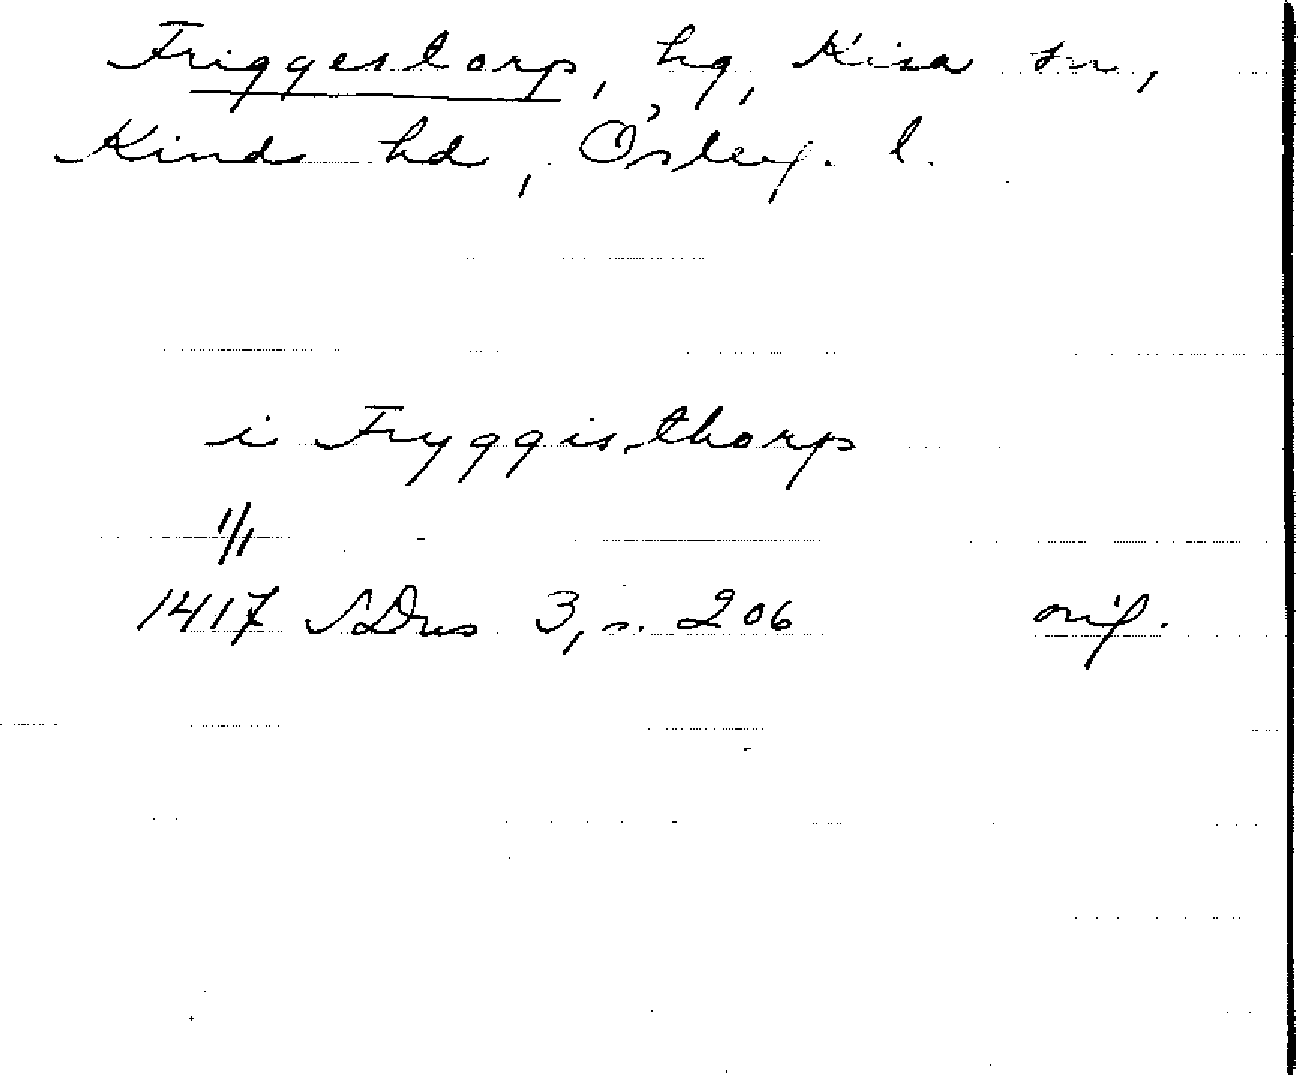 Friggestorp, hg, Kisa sn,
Kinds hd, Österg. l.
i Fryggisthorp
1/1
1417 SDns 3, s. 206 orig.